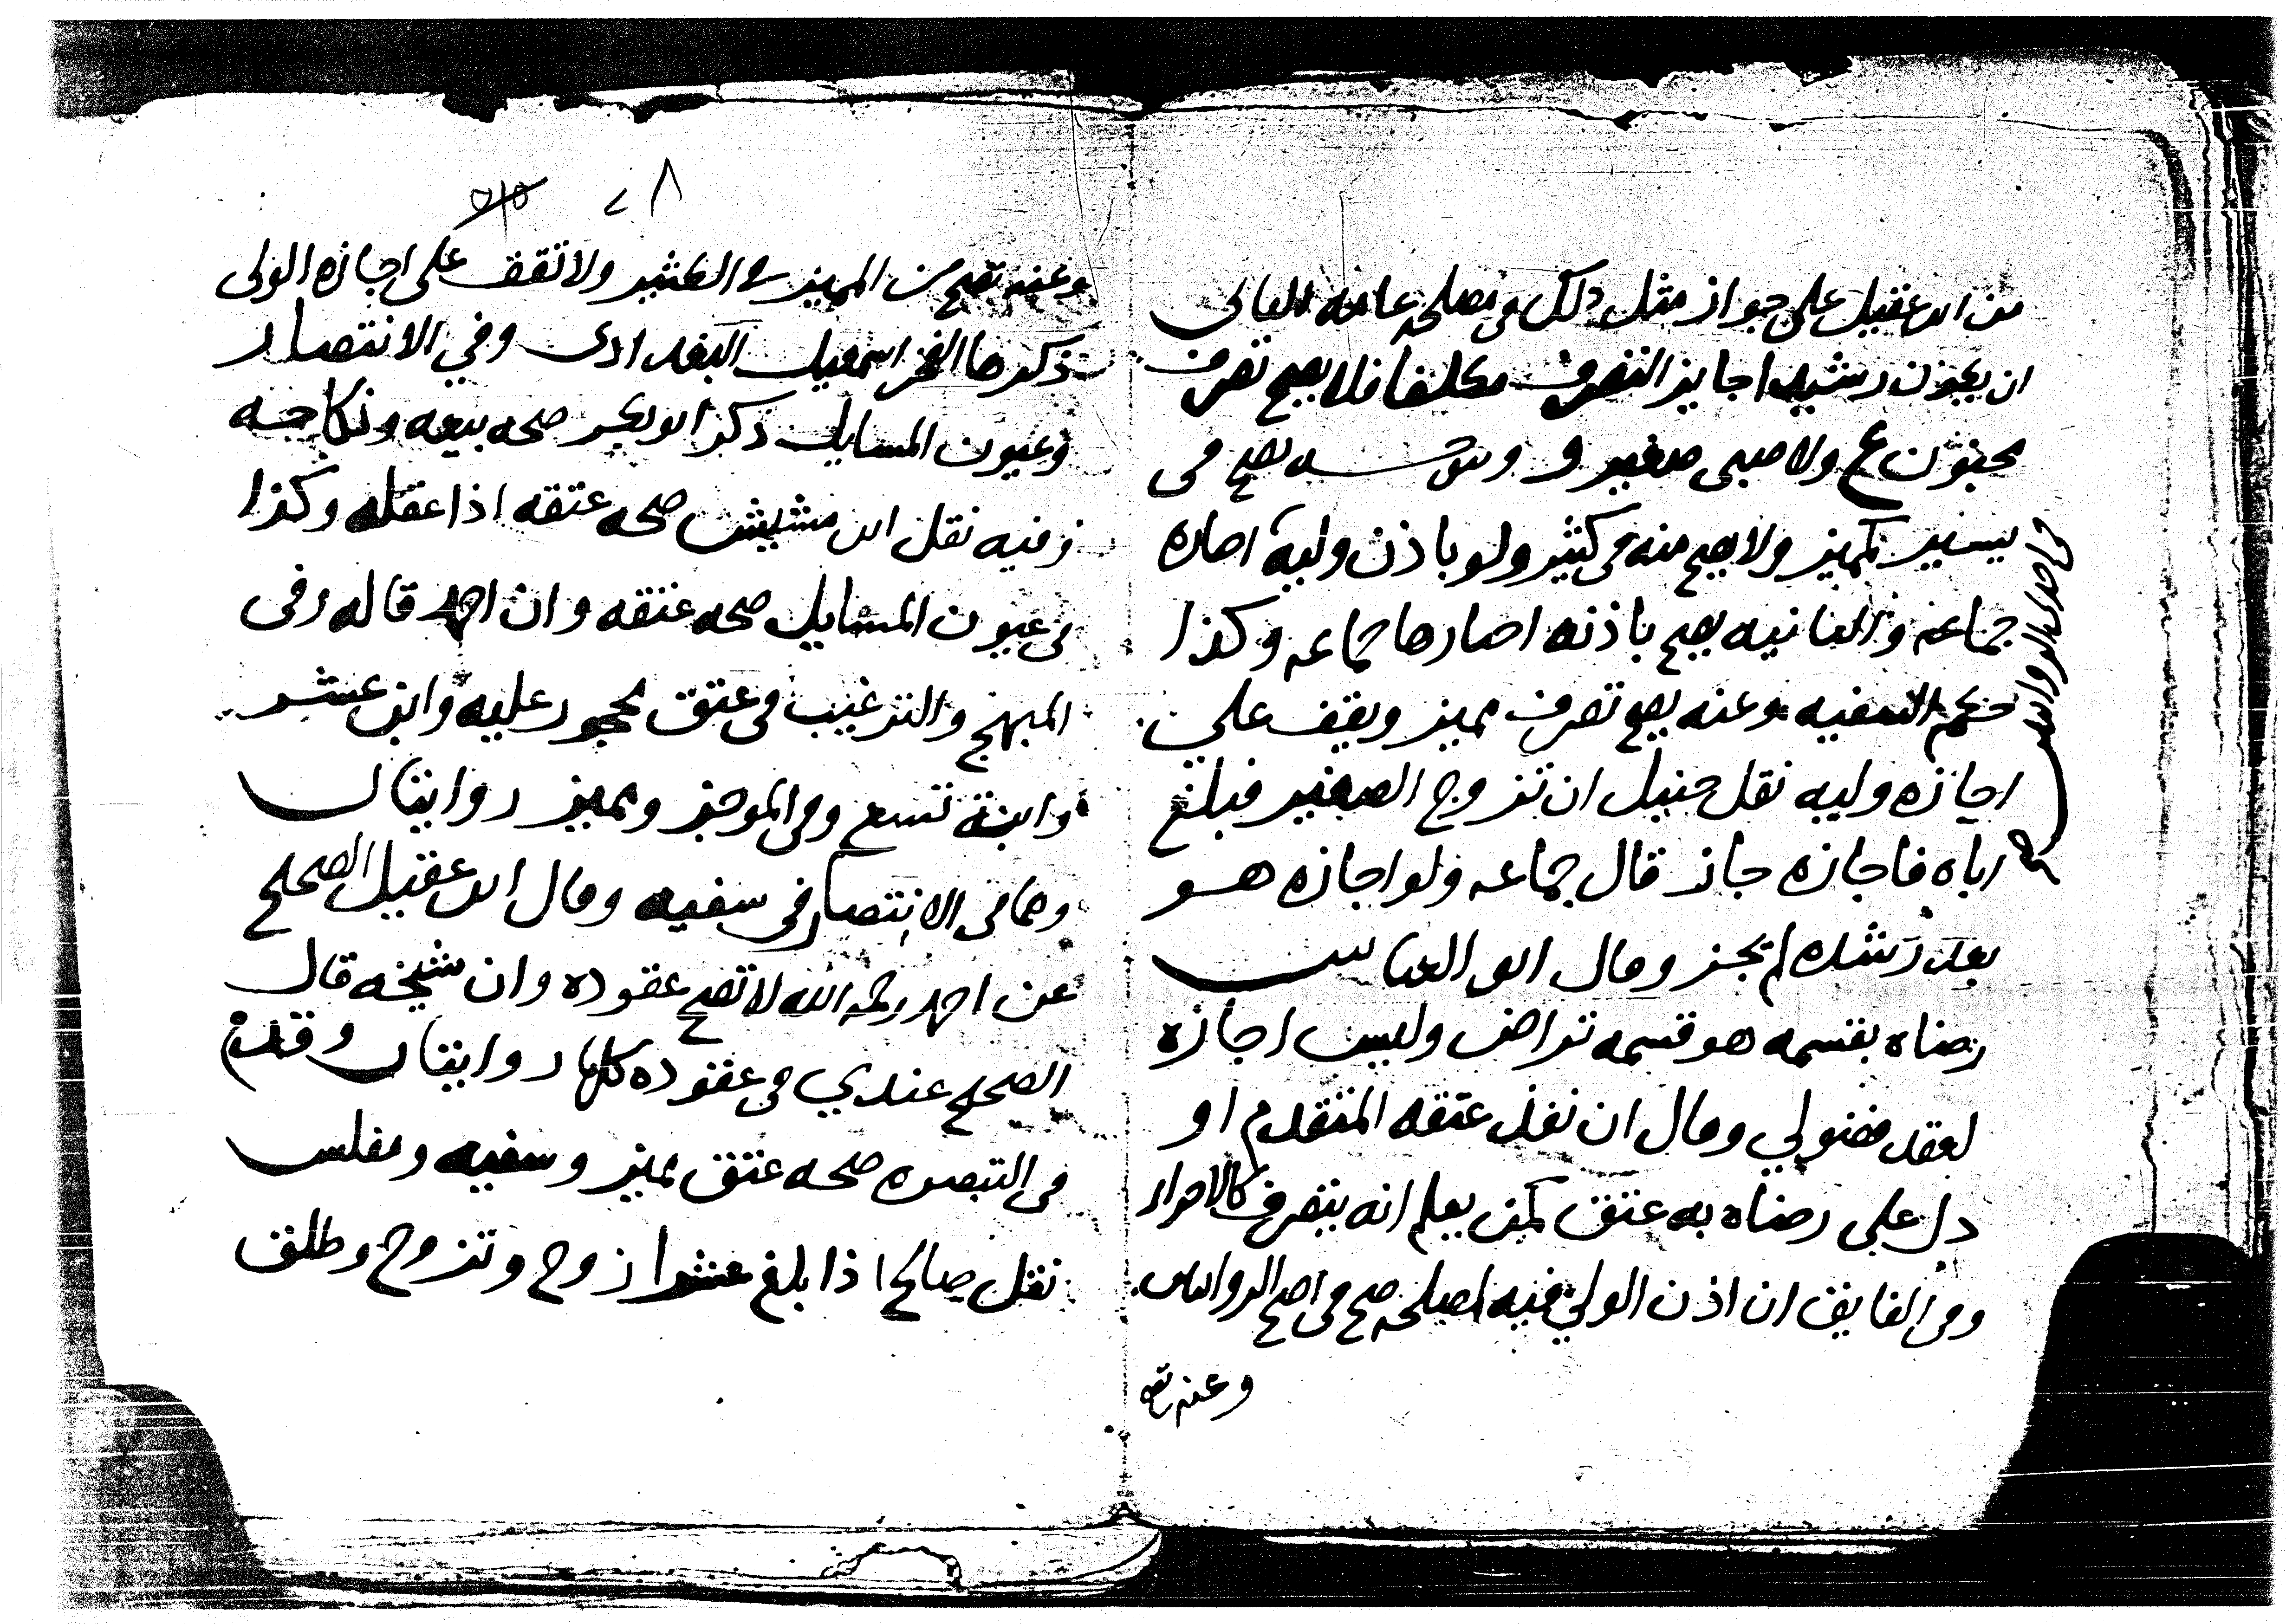 من ابن عقيل على جواز مثل ذلك في مصلحة عامه الثاني
ان يكون رشيدا جايز التصرف مكلفا فلا يصح تصرف
مجنون ع ولا صبي صغير و وسفيه يصح في
يسير كمميز ولا يصح منه في كثير ولو باذن وليه اختاره
جماعه والثانيه يصح باذنه اختارها جماعه وكذا
حكم السفيه وعنه يصح تصرف مميز ويقف على
اجازه وليه نقل حنبل ان تزوج الصغير فبلغ
اباه فاجازه جاز قال جماعه ولو اجازه هو
بعد رشده لم يجز وقال ابو العباس
رضاه بقسمه هو قسمه تراض وليس اجازه
لعقد فضولي وقال ان نفذ عتقه المتقدم او
دل على رضاه به عتق كمن يعلم انه يتصرف كالاحرار
وفي الفايق ان اذن الولي فيه لمصلحه صح في اصح الروايتين
وعنه تصح
في احدى الروايتين صح
٢٨
وعنه تصح من المميز في الكثير ولا تقف على اجازه الولي
ذكرها الفخر اسمعيل البغدادي وفي الانتصار
وعيون المسايل ذكر ابو بكر صحه بيعه ونكاحه
وفيه نقل ابن مشيش صحه عتقه اذا عقله وكذا
في عيون المسايل صحه عتقه وان احمد قاله وفي
المبهج والترغيب في عتق محجور عليه وابن عشر
وابنة تسع وفي الموجز ومميز روايتان
وهما في الانتصار في سفيه وقال ابن عقيل الصحيح
عن احمد رحمه الله لا تصح عقوده وان شيخه قال
الصحيح عندي في عقوده كلها روايتان وقدم
في التبصره صحه عتق مميز وسفيه ومفلس
نقل صالح اذا بلغ عشرا زوج وتزوج وطلق